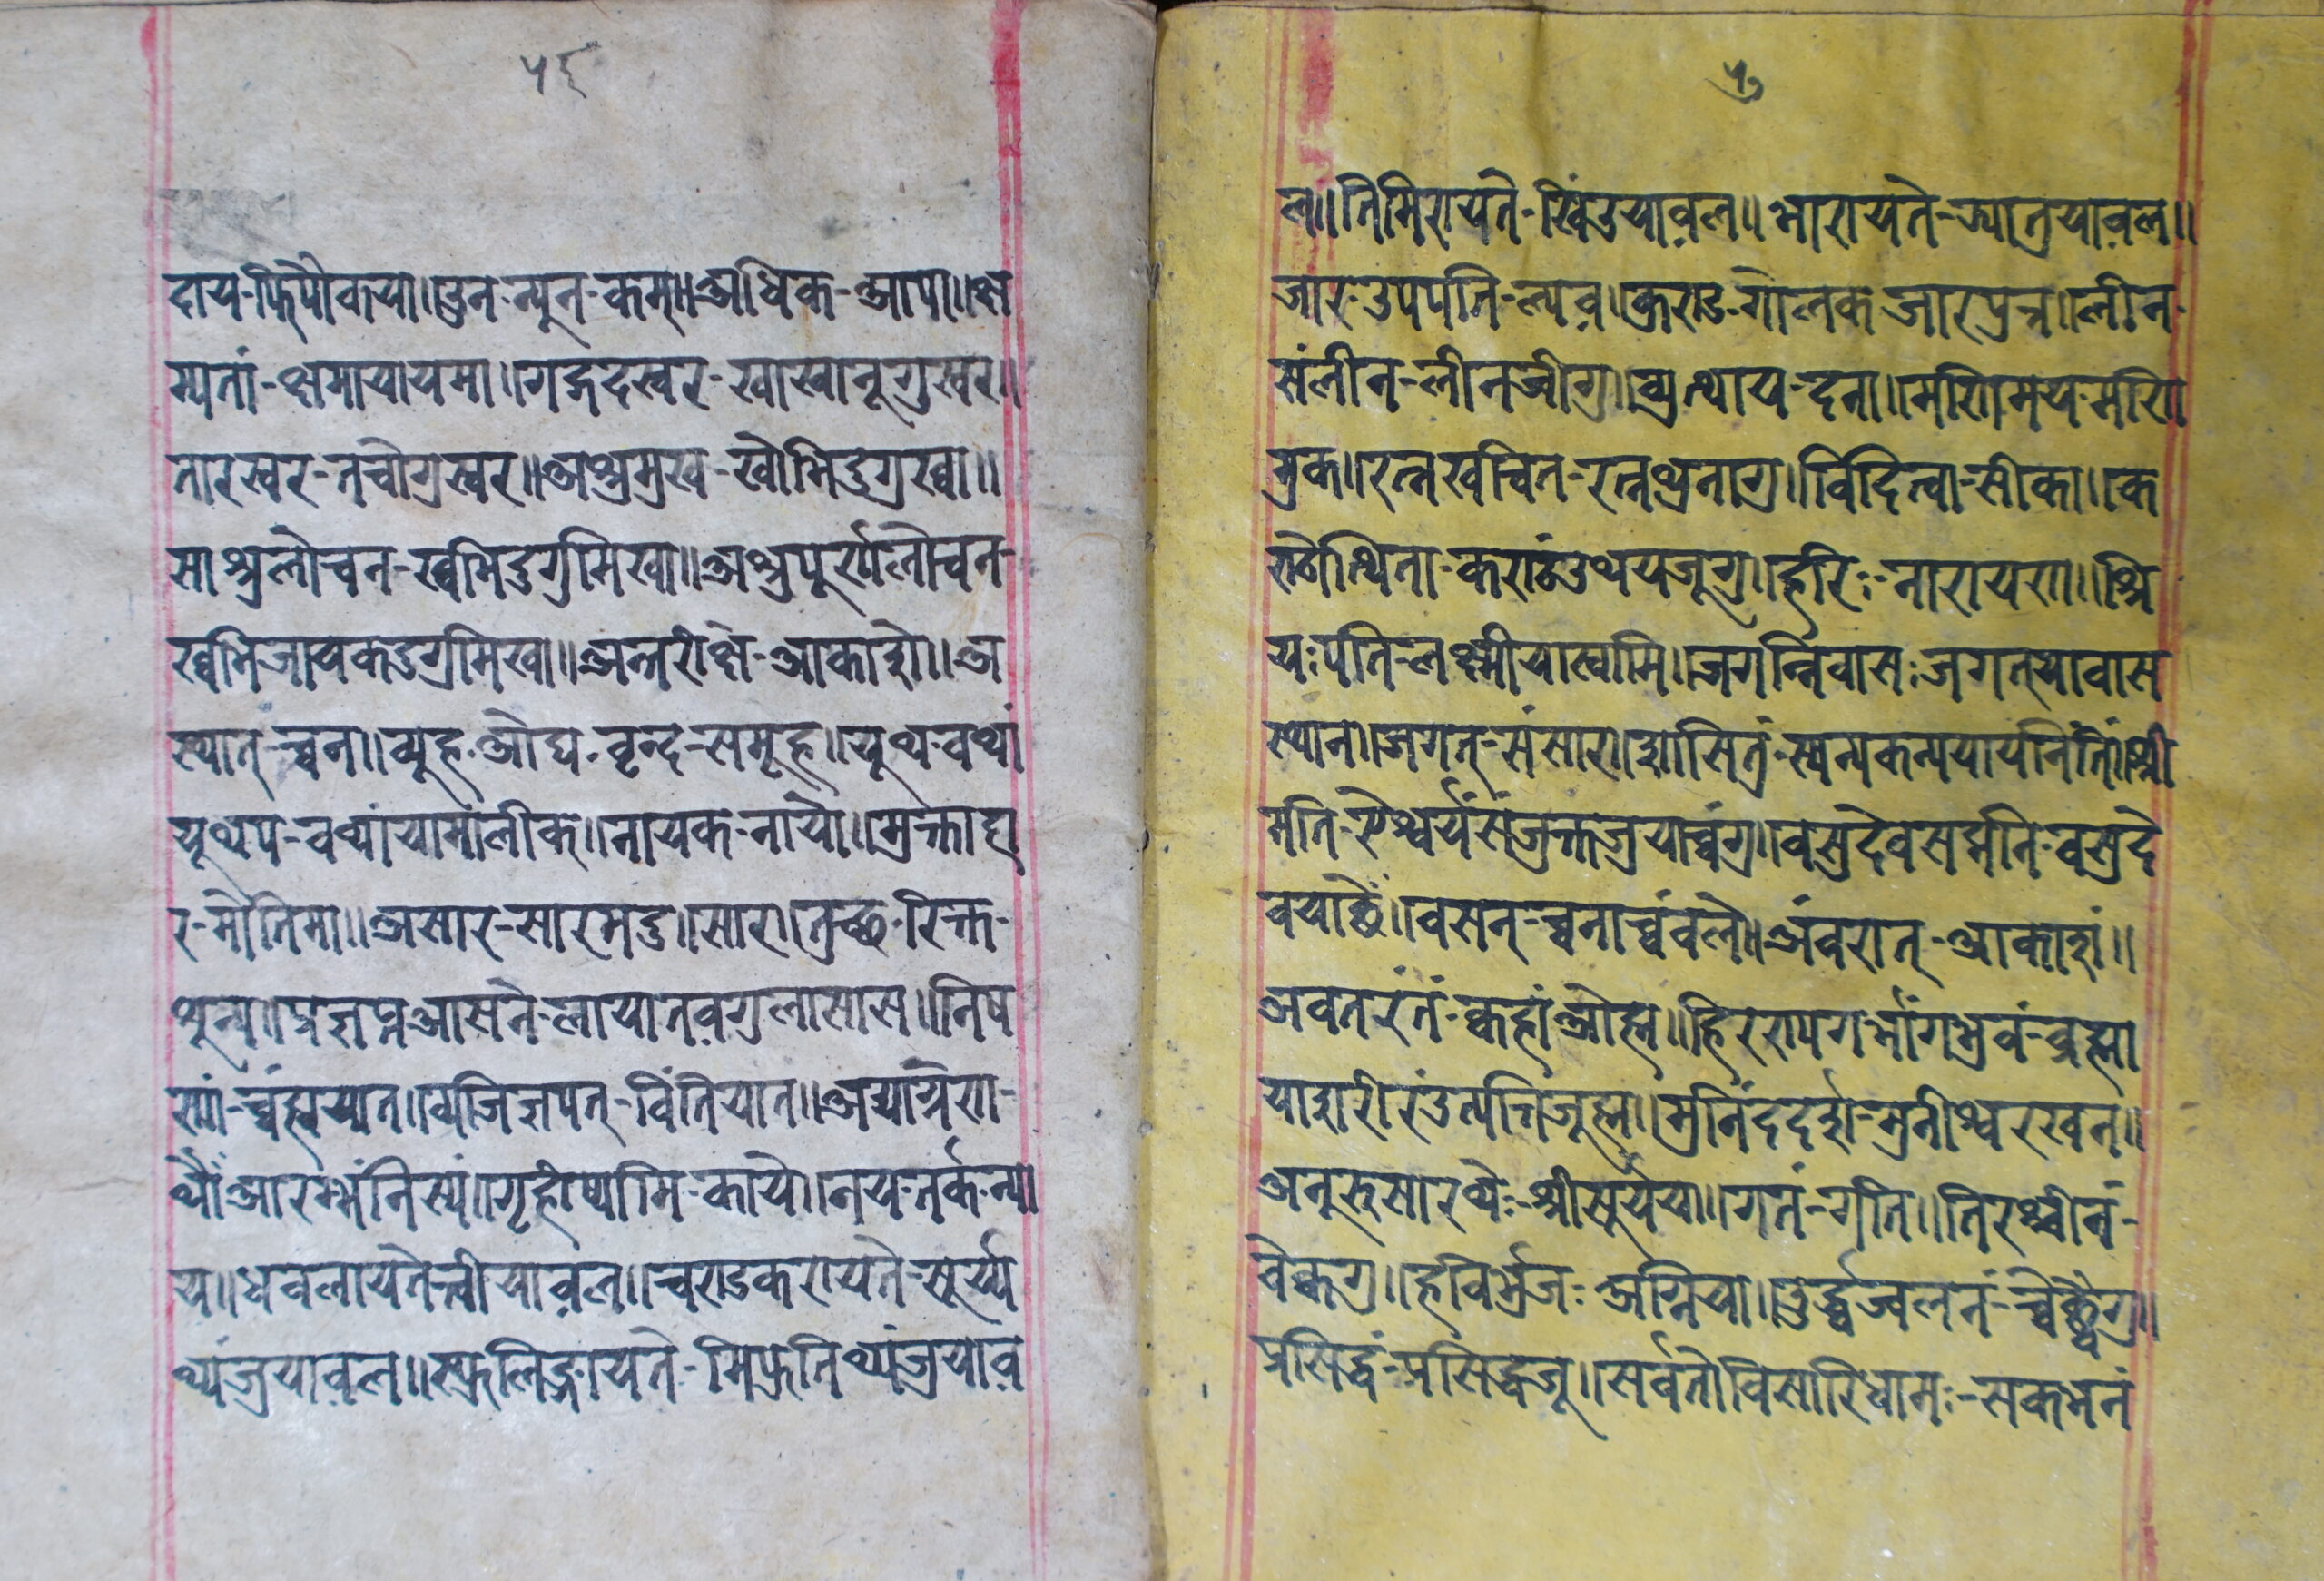 ५६
दाय-फिपोवाया॥उन-न्यून-कम॥अधिक-आपा॥क्ष
म्यतां-क्षमायायमा॥गद्गदस्वर-खाखानूगुस्वर॥
तारस्वर-तचोगुस्वर॥अश्रुमुख-खोभिदुगुख्वा॥
साश्रुलोचन-ख्वभिदुगुमिखा॥अश्रुपुर्णलोचन-
ख्वभिजायकडगुमिखा॥अन्तरीक्षे-आकाशे॥अ
स्यात्-च्वन॥व्युह-ओघ-वृन्द-समूह॥यूथ-वथां
यूथप-वथांयामालीक॥नायक-नायो॥मुक्ताहा
र-मोतिमा॥असार-सारमदु॥सार॥तुच्छ-रिक्त-
शून्य॥प्रज्ञप्तआसने-लायातवगुलासास॥निष
ण्णां-च्वंह्मयात॥व्यजिज्ञपत्-विंतियात॥
आरम्भंनिस्यं॥गृहीष्यामि-काये॥नय-तर्क-न्या
य॥धवलायते-त्वीयावल॥चण्डकरायते-सूर्य्य
थ्यंजुयावल॥स्फुलिङ्गायते-मिफुतिथ्यंजुयाव
५७
ल॥तिमिरायते-खिंउयावल॥भारायते-ज्यातुयावल॥
जार-उपपति-ल्यव॥कुराड-गोलक जारपुत्र॥लीन-
संलीन-लीनजीगु॥व्युत्थाय-दना॥मणिमय-मणि
मुक॥रत्नखचित-रत्नथुनागु॥विदित्वा-सीका॥क
ण्ठोत्थिता-कण्ठंउथयजूगु॥हरिः-नारायण॥श्रि
यःपति-लक्ष्मीयास्वामि॥जगन्निवासःजगत्यावास
स्थान॥जगत्-संसार॥शासितुं-स्यन्यकन्ययायनिंतिं॥श्री
मति-ऐश्वर्यसंजुक्तजुयाच्वंगु॥वसुदेवसद्मनि-वसुदे
वयाछेँ॥वसन्-च्वनाच्वंवले॥अंवरात्-आकाशं॥
अवतरंतं-क्वहांओह्म॥हिरण्यगर्भांगभुवं-ब्रह्मा
याशरीरंउत्पत्तिजूह्म॥मुनिंददर्श-मुनीश्वरखन॥
अनूरुसारथ्येः-श्रीसूर्यया॥गतं-गति॥तिरश्चीनं-
वेक्वगु॥हविर्भुजः-अग्निया॥उर्द्ध्वज्वलनं-
प्रसिद्धं-प्रसिद्धजू॥सर्वतोविसारिधामः-सकभनं